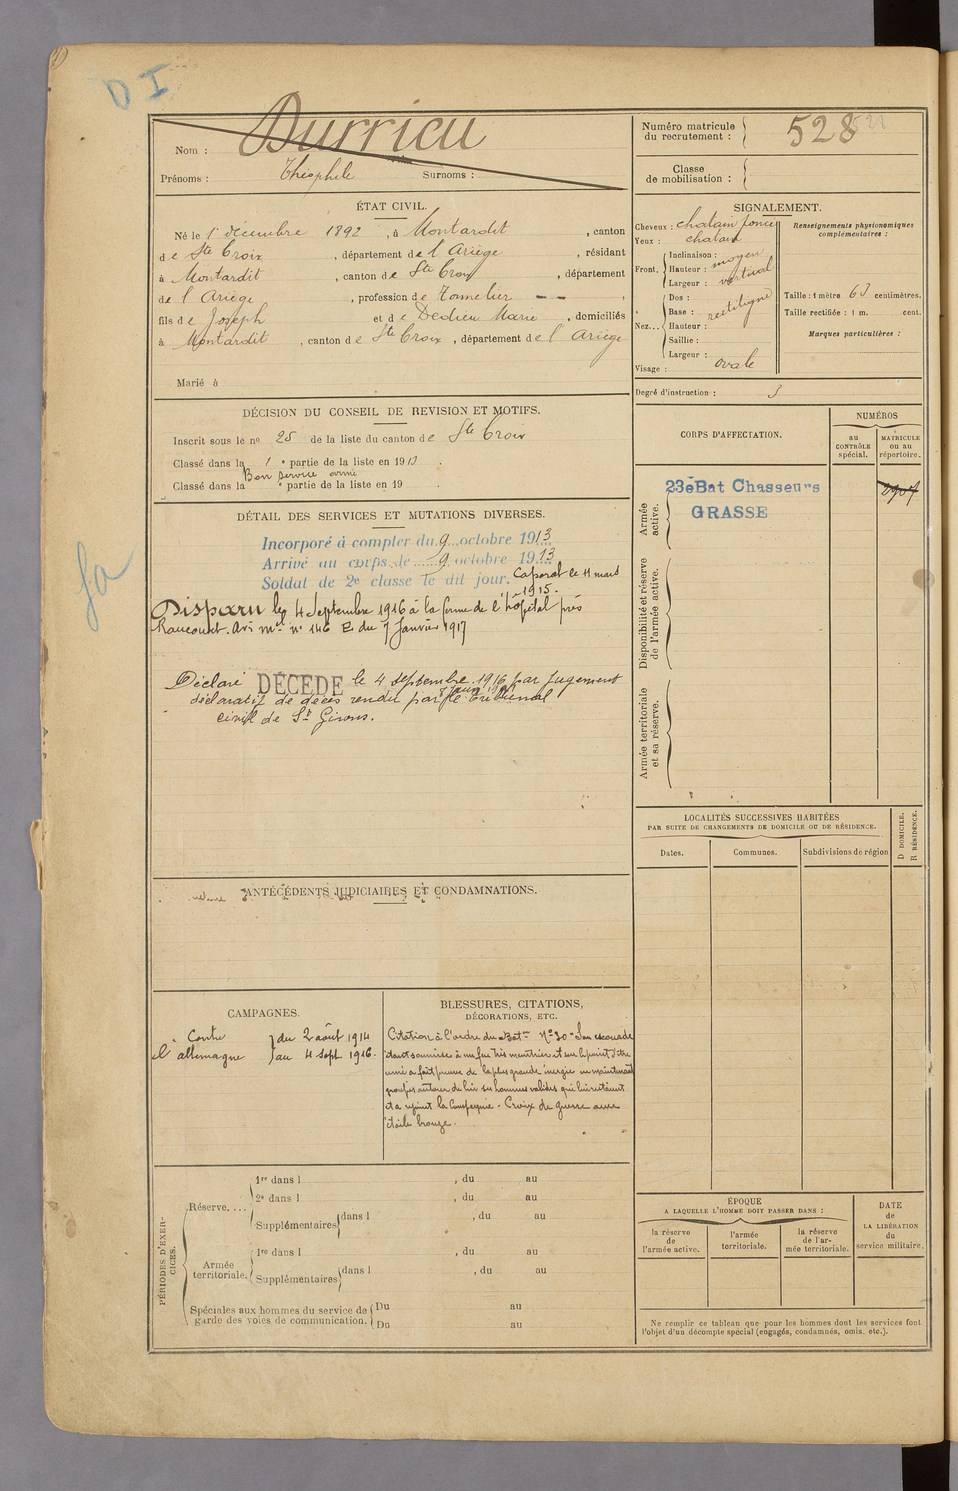 D I
Nom : Durrieu
Prénoms : Théophile Surnoms :
Numéro matricule
du recrutement : 528
Classe
de mobilisation :
ÉTAT CIVIL.
Né le 1er décembre 1892, à Montardit, canton
de Ste Croix, département de l'Ariège, résidant
à Montardit, canton de Ste Croix, département
de l'Ariège, profession de Tonnelier
fils de Joseph et de Dedieu Marie, domiciliés
à Montardit, canton de Ste Croix, département de l'Ariège
Marié à
SIGNALEMENT.
Cheveux : chatain foncé
Yeux : chatain
Front. Inclinaison : moyen
Hauteur : vertical
Largeur :
Nez... Dos : rectiligne
Base :
Hauteur :
Saillie :
Largeur :
Visage : ovale
Renseignements physionomiques
complémentaires :
Taille : 1 mètre 63 centimètres.
Taille rectifiée : 1 m. cent.
Marques particulières :
Degré d'instruction : 3
DÉCISION DU CONSEIL DE REVISION ET MOTIFS.
Inscrit sous le no 25 de la liste du canton de Ste Croix
Classé dans la 1e partie de la liste en 1913.
Bon service armé
Classé dans la e partie de la liste en 19 .
DÉTAIL DES SERVICES ET MUTATIONS DIVERSES.
Incorporé à compter du 9 octobre 1913
Arrivé au corps le 9 octobre 1913
Soldat de 2e classe le dit jour. Caporal le 11 mars
1915.
Disparu le 4 Septembre 1916 à la ferme de l'hôpital près
Rancourt. Avis mel no 146 E du 7 Janvier 1917
Déclaré DÉCÉDÉ le 4 septembre 1916 par jugement
déclaratif de décès rendu par le Tribunal
civil de St Girons.
CORPS D'AFFECTATION.
NUMÉROS
au
CONTRÔLE
spécial.
MATRICULE
ou au
répertoire.
Armée
active.
23e Bat Chasseurs
GRASSE
Disponibilité et réserve
de l'armée active.
Armée territoriale
et sa réserve.
LOCALITÉS SUCCESSIVES HABITÉES
PAR SUITE DE CHANGEMENTS DE DOMICILE OU DE RÉSIDENCE.
Dates.
Communes.
Subdivisions de région
D DOMICILE.
R RÉSIDENCE.
ANTÉCÉDENTS JUDICIAIRES ET CONDAMNATIONS.
CAMPAGNES.
Contre du 2 août 1914
l'allemagne au 4 sept 1916.
BLESSURES, CITATIONS,
DÉCORATIONS, ETC.
Citation à l'ordre du Baton No 30 "Son escouade
étant soumise à un feu très meurtrier et sur le point d'être
cerné a fait preuve de la plus grande énergie en maintenant
groupés autour de lui ses hommes valides qui lui restaient
et a rejoint la Compagnie. Croix de guerre avec
étoile bronze.
PÉRIODES D'EXER-
CICES.
Réserve....
1re dans l , du au
2e dans l , du au
Supplémentaires dans l , du au
Armée
territoriale.
1re dans l , du au
Supplémentaires dans l , du au
Spéciales aux hommes du service de
garde des voies de communication.
Du au
Du au
ÉPOQUE
A LAQUELLE L'HOMME DOIT PASSER DANS :
la réserve
de
l'armée active.
l'armée
territoriale.
la réserve
de l'ar-
mée territoriale.
DATE
de
LA LIBÉRATION
du
service militaire.
Ne remplir ce tableau que pour les hommes dont les services font
l'objet d'un décompte spécial (engagés, condamnés, omis, etc.).